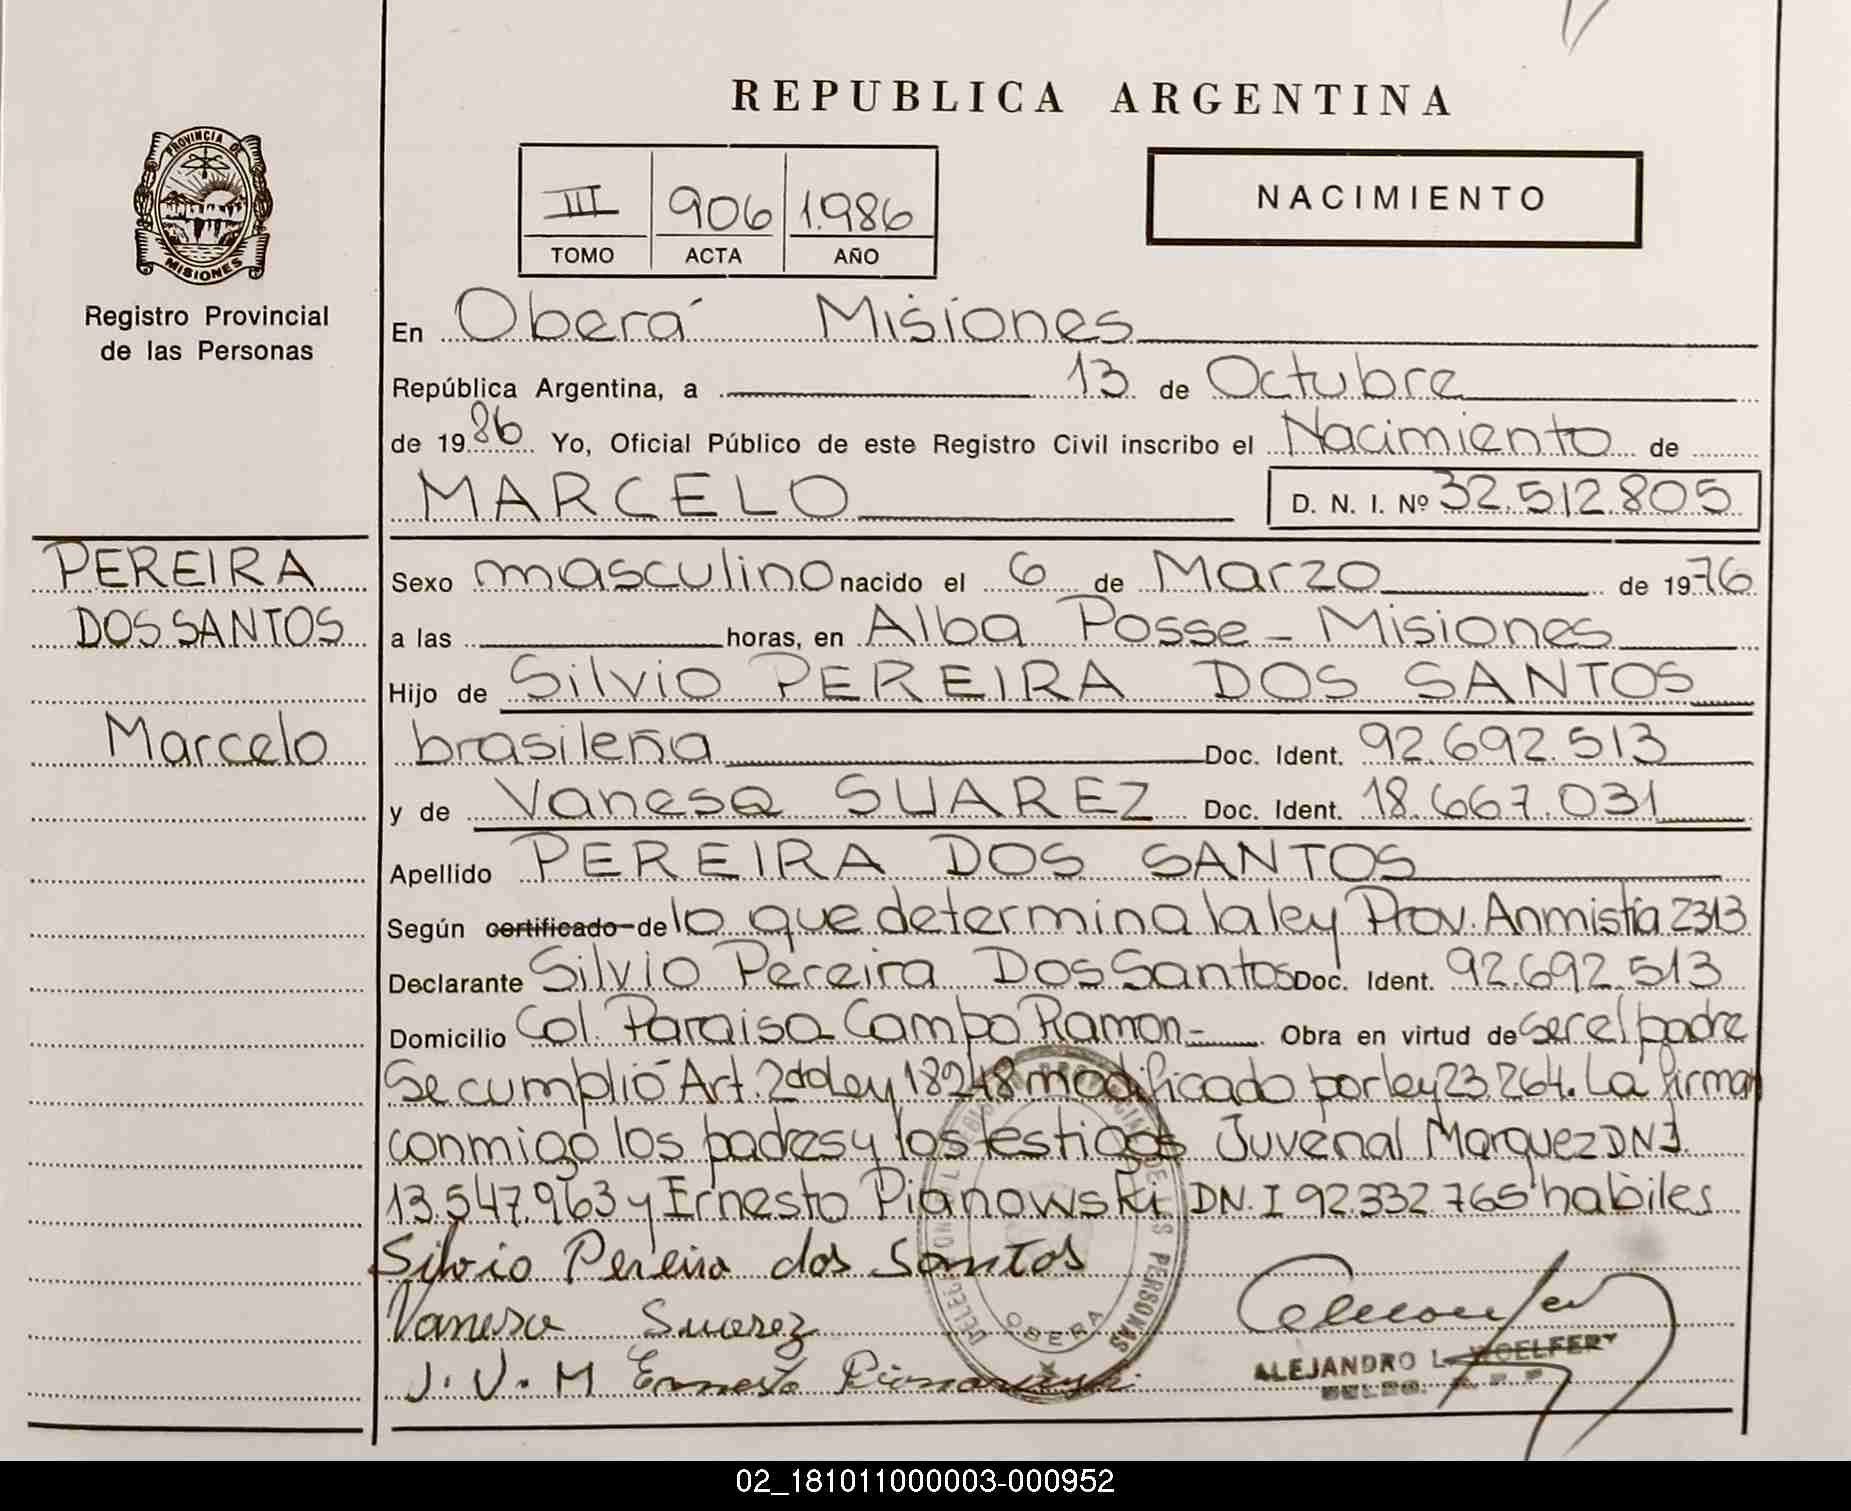 REPUBLICA ARGENTINA
PROVINCIA DE
MISIONES
Registro Provincial
de las Personas
III 906 1.986
TOMO ACTA AÑO
NACIMIENTO
En Oberá Misiones
República Argentina, a 13 de Octubre
de 1986 Yo, Oficial Público de este Registro Civil inscribo el Nacimiento de
MARCELO D. N. I. Nº 32.512.805
PEREIRA
DOS SANTOS
Marcelo
Sexo masculino nacido el 6 de Marzo de 1976
a las horas, en Alba Posse - Misiones
Hijo de Silvio PEREIRA DOS SANTOS
brasileña Doc. Ident. 92.692.513
y de Vanesa SUAREZ Doc. Ident. 18.667.031
Apellido PEREIRA DOS SANTOS
Según certificado de lo que determina la ley Prov. Anmistía 2313
Declarante Silvio Pereira Dos Santos Doc. Ident. 92.692.513
Domicilio Col. Paraiso Campo Ramon - Obra en virtud de ser el padre
Se cumplió Art. 2do Ley 18248 modificado por ley 23.264. La firman
conmigo los padres y los testigos Juvenal Marquez DNI.
13.547.963 y Ernesto Pianowski DN.I 92.332.765 habiles
Silvio Pereira dos Santos
Vanesa Suarez
J. V. M Ernesto Pianowski
OBERA
ALEJANDRO L. WOELFERT
02_181011000003-000952